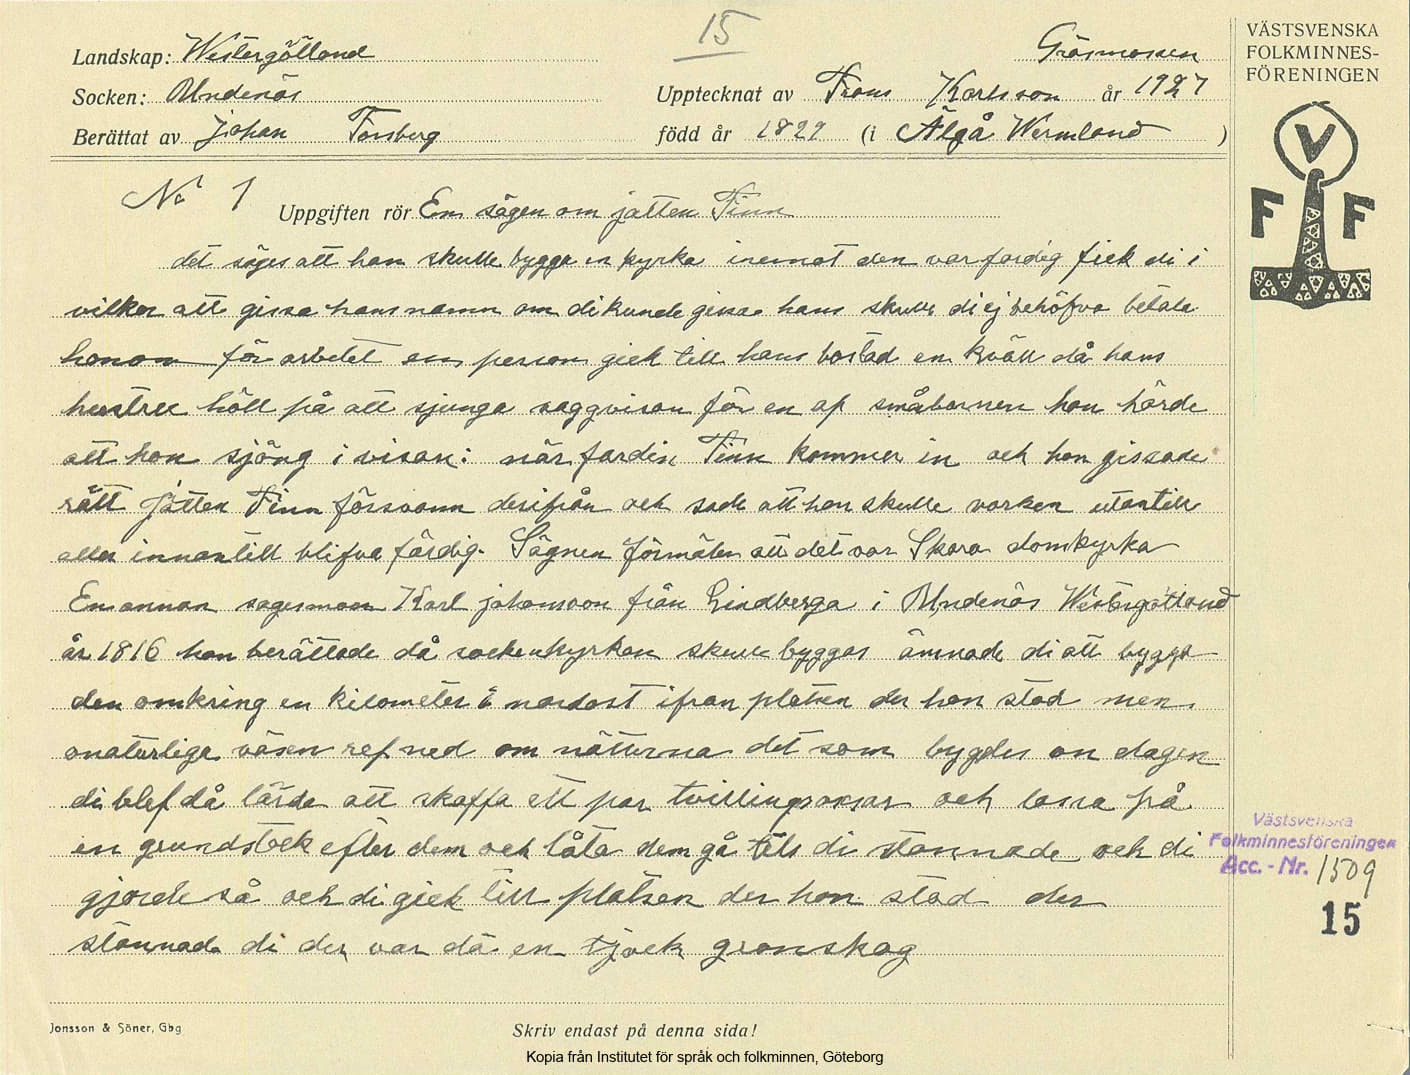 15
Landskap: Westergötland
Gräsmossen
Socken: Undenäs
Upptecknat av Frans Karlsson år 1927
Berättat av Johan Forsberg
född år 1829 (i Älgå Wermland )
No 1
Uppgiften rör En sägen om jätten Finn
det säges att han skulle bygga en kyrka inemot den var fardig fick di i
vilkor att gissa hans namn om di kunde gissa hans skulle di ej behöfva betala
honom för arbetet en person gick till hans bostad en kväll då hans
hustru höll på att sjunga vaggvisan för en af småbarnen han hörde
att hon sjöng i visan: när fardin Finn kommer in och han gissade
rätt Jätten Finn försvann derifrån och sade att han skulle varken utantill
eller innantill blifva färdig. Sägnen förmäler att det var Skara domkyrka
En annan sagesman Karl johansson från Lindberga i Undenäs Westergötland
år 1816 han berättade då sockenkyrkan skulle byggas ämnade di att bygga
den omkring en kilometer i nordost ifran platsen der hon stod men
onaturliga väsen ref ned om nätterna det som bygdes on dagen
di blef då lärda att skaffa ett par tvillingsoxar och lassa på
en grundstock efter dem och låta dem gå tils di stannade och di
gjorde så och di gick till platsen der hon stod der
stannade di der var då en tjock granskog
Jonsson & Söner, Gbg
Skriv endast på denna sida!
Kopia från Institutet för språk och folkminnen, Göteborg
VÄSTSVENSKA
FOLKMINNES-
FÖRENINGEN
V
F F
Västsvenska
Folkminnesföreningen
Acc.-Nr. 1509
15